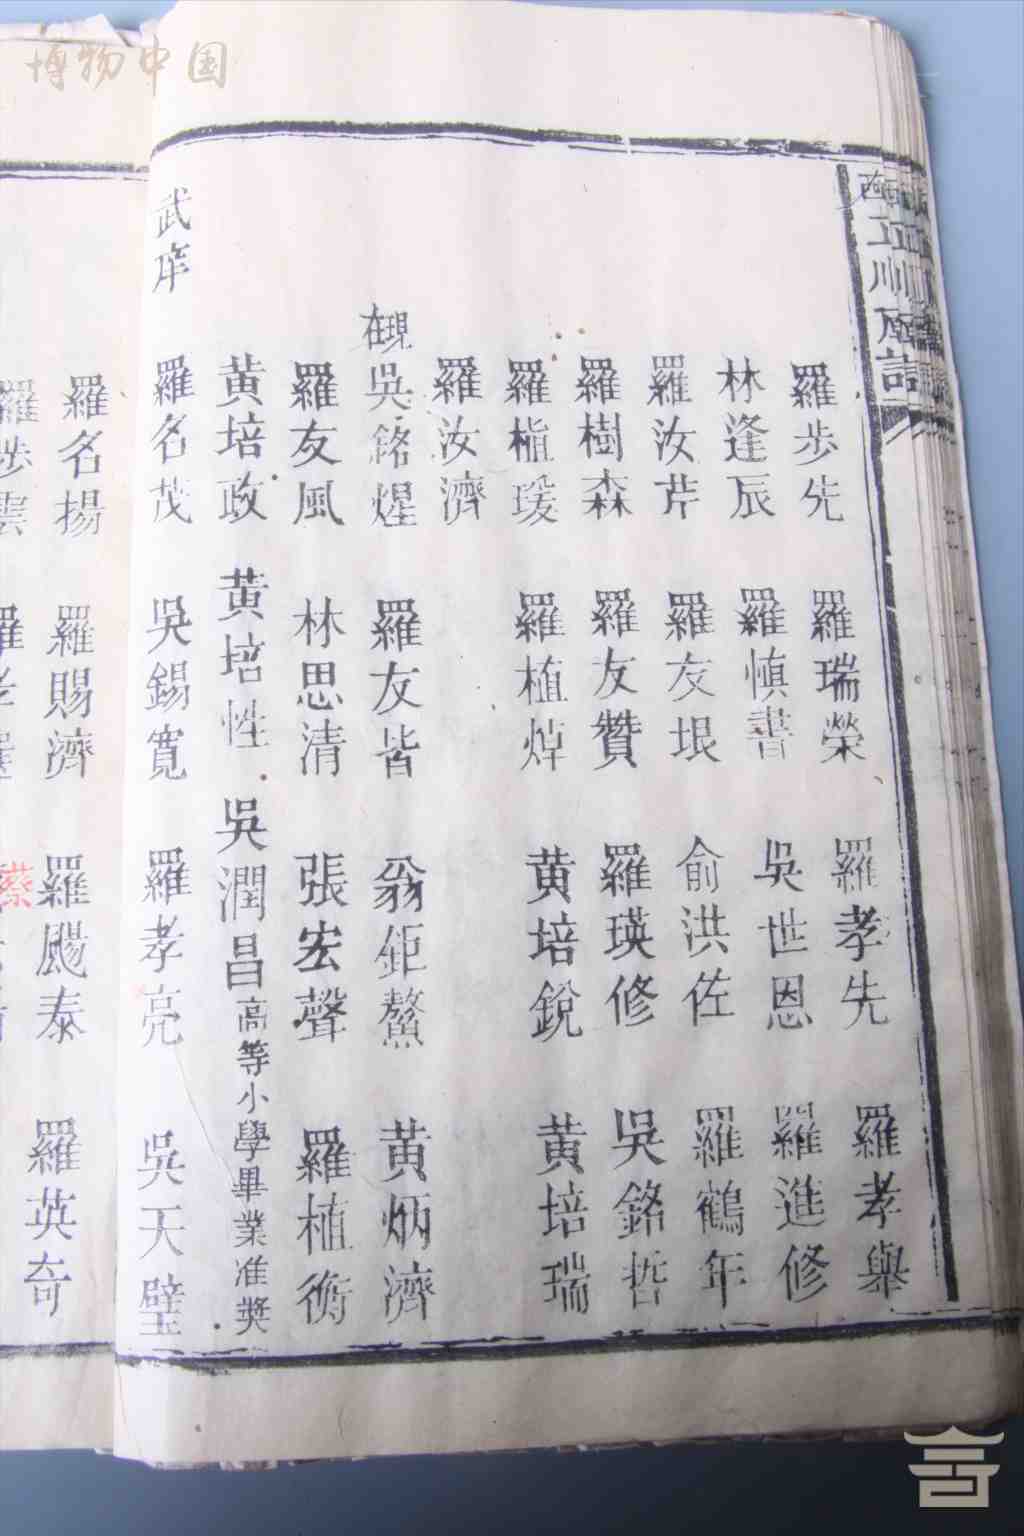 博物中国
羅步先 羅瑞榮 羅孝先 羅孝舉
林逢辰 羅慎書 吳世恩 羅進修
羅汝芹 羅友垠 俞洪佐 羅鶴年
羅樹森 羅友贊 羅瑛修 吳銘哲
羅植瑗 羅植焯 黄培銳 黄培瑞
羅汝濟
現在 吳銘煋 羅友皆 翁鉅鰲 黄炳濟
羅友風 林思清 張宏聲 羅植衡
黄培政 黄培性 吳潤昌 高等小學畢業准獎
武庠 羅名茂 吳錫寬 羅孝亮 吳天璧
羅名揚 羅賜濟 羅颺泰 羅英奇
羅步雲
蔡